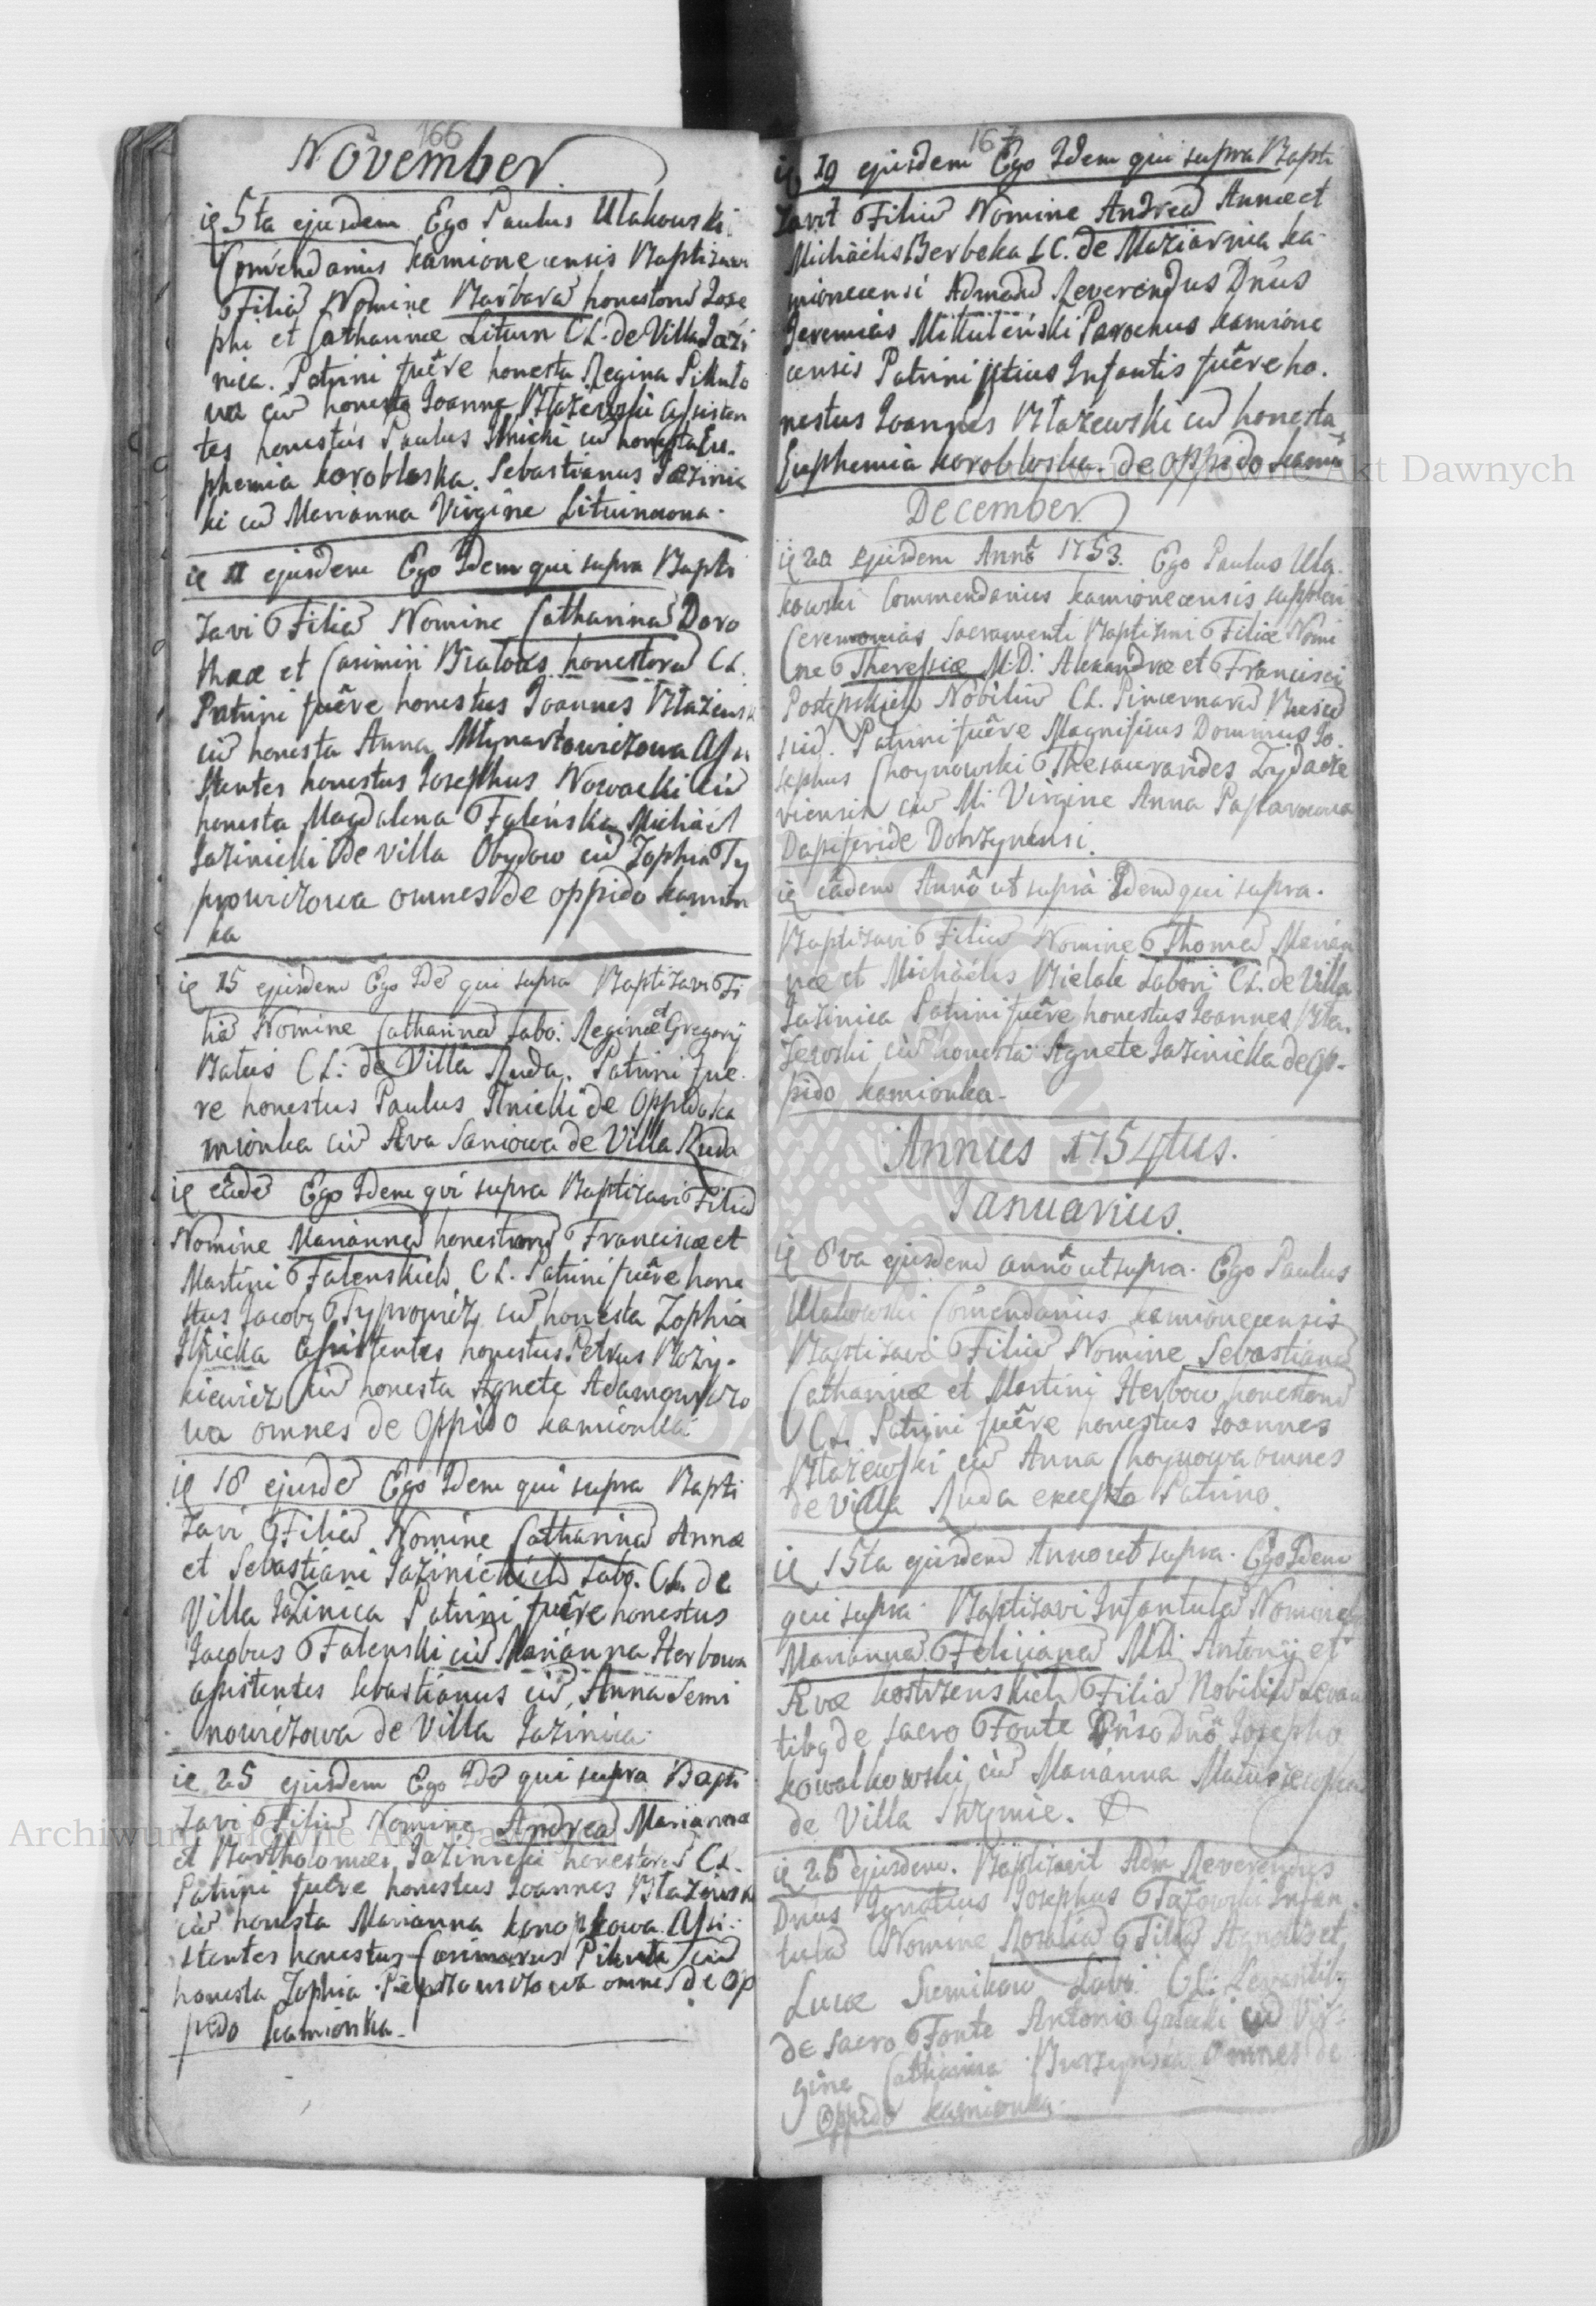 166
November
ię 5ta ejusdem Ego Paulus Ulakowski
Com̃endarius Kamionecensis Baptizavi
Filiã Nomine Barbarã honestorũ Jose
phi et Catharinæ Litwin CL. de Villa Jazi
nica. Patrini fuêre honesta Regina Pikulo
wa cũ honesto Joanne Błażewski Assisten
tes honestus Paulus Ilnicki cũ honesta Eu-
phemia Korobloska. Sebastianus Jazinic
ki cũ Marianna Virgine Litwinowna.
ię 11 ejusdem Ego Idem qui supra Bapti
zavi Filiã Nomine Catharinã Doro
theæ et Casimiri Białous honestorũ CL.
Patrini fuêre honestus Joannes Błażewsk
cũ honesta Anna Młynartowiczowa Assi
stentes honestus Josephus Nowacki cũ
honesta Magdalena Faleńska Michäel
Jazinicki de Villa Obydow cũ Zophia Ty
prowiczowa omnes de oppido Kamion
ka
ię 15 ejusdem Ego Idẽ qui supra Baptizavi Fi
liã Nomine Catharinã Labo: Reginæ et Gregorij
Batus CL: de Villa Ruda. Patrini fue
re honestus Paulus Ilnicki de Oppido Ka
mionka cũ Eva Saniowa de Villa Ruda
ię eâdẽ Ego Idem qui supra Baptizavi Filiã
Nomine Mariannã honestorũ Franciscæ et
Martini Falenskich CL. Patrini fuêre hone
stus Jacobg Typrowicz cũ honesta Zophia
Ilnicka Assistentes honestus Petrus Rozy-
kiewicz cũ honesta Agnete Adamowiczo
wa omnes de Oppido Kamionka
ię 18 ejusdẽ Ego Idem qui supra Bapti
zavi Filiã Nomine Catharinã Annæ
et Sebastiani Jazinickich Labo. CL. de
Villa Jazinica Patrini fuêre honestus
Jacobus Falenski cũ Marianna Herbowa
assistentes Sebastianus cũ Anna Semi
nowiczowa de Villa Jazinica.
ię 25 ejusdem Ego Idẽ qui supra Bapti
zavi Filiũ Nomine Andreã Mariannæ
et Bartholomæi Jazinicki honestorũ CL.
Patrini fuêre honestus Joannes Błażewsk
cũ honesta Marianna Konopkowa. Assi-
stentes honestus Casimirus Pikuła cũ
honesta Zophia omnes de Op
pido Kamionka.
167
ię 29 ejusdem Ego Idem qui supra Bapti
zavit Filiũ Nomine Andreã Annæ et
Michäelis Berbeka LC. de Maziarnia Ka-
mionecensi Admodũ Reverendus Dnus
Jeremias Mikuleński Parochus Kamione
censis Patrini istius Infantis fuêre ho-
nestus Joannes Błażewski cũ honesta
Euphemia Korobloska. de Oppido Kamio
December
ię 2a ejusdem Annô 1753. Ego Paulus Ula-
kowski Commendarius Kamionecensis supplevi
Ceremonias Sacramenti Baptismi Filiæ Nomi
ne Theressiæ M:D: Alexandræ et Francisci
Postępskich Nobiliũ CL. Pincernarũ
Patrini fuêre Magnificus Dominus Jo
sephus Choynowski Thesaurarides Zydacze
viensis cũ M: Virgine Anna
Dapiferide Dobrzynensi.
ię eâdem Annô ut suprà Idem qui supra.
Baptizavi Filiũ Nomine Thomã Marian
næ et Michäelis Bielak Labori: CL. de Villa
Jazinica Patrini fuêre honestus Joannes Bła-
żewski cũ honesta Agnete Jazinicka de Op-
pido Kamionka.
Annus 1754tus.
Januarius.
ię 6va ejusdem annô ut supra. Ego Paulus
Ulakowski Com̃endarius Kamionecensis
Baptizavi Filiũ Nomine Sebastianũ
Catharinæ et Martini Herbow honestorũ
CL. Patrini fuêre honestus Joannes
Błażewski cũ Anna Choynowa omnes
de Villa Ruda excepto Patrino.
ię 15ta ejusdem Anno ut supra. Ego Idem
qui supra. Baptizavi Infantulã Nomine
Mariannã Felicianã M:D: Antonij et
Evæ Kostrzenskich Filiã Nobiliũ Levan
tibg de sacro Fonte Dnô Josepho
Kowalkowski cũ Marianna
de Villa
ię 25 ejusdem. Baptizavit Adm Reverendus
Dnus Ignatius Josephus Infan
tulã Nomine Rosaliã Filiã Agnetis et
Lucæ Semikow Labo: CL: Levantibg
de sacro Fonte Antonio Gałecki cũ Vir-
gine Catharina Burzynska omnes de
Oppido Kamionka.
Archiwum Główne Akt Dawnych
Archiwum Główne Akt Dawnych